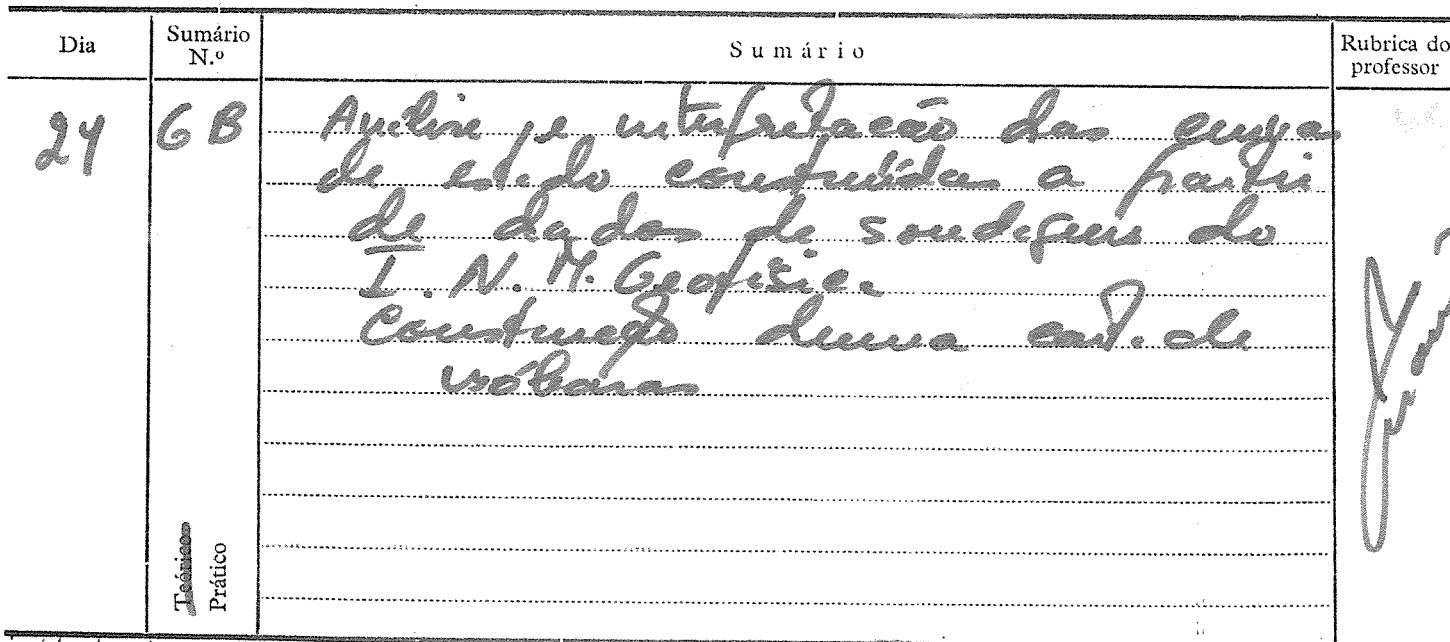 Dia
Sumário N.º
Sumário
Rubrica do professor
24
6 B
Análise e interpretação das curvas
de estado construídas a partir
de dados de sondagens do
I. N. M. Geofísica
Construção duma cart. de
isóbaras
Teórico
Prático